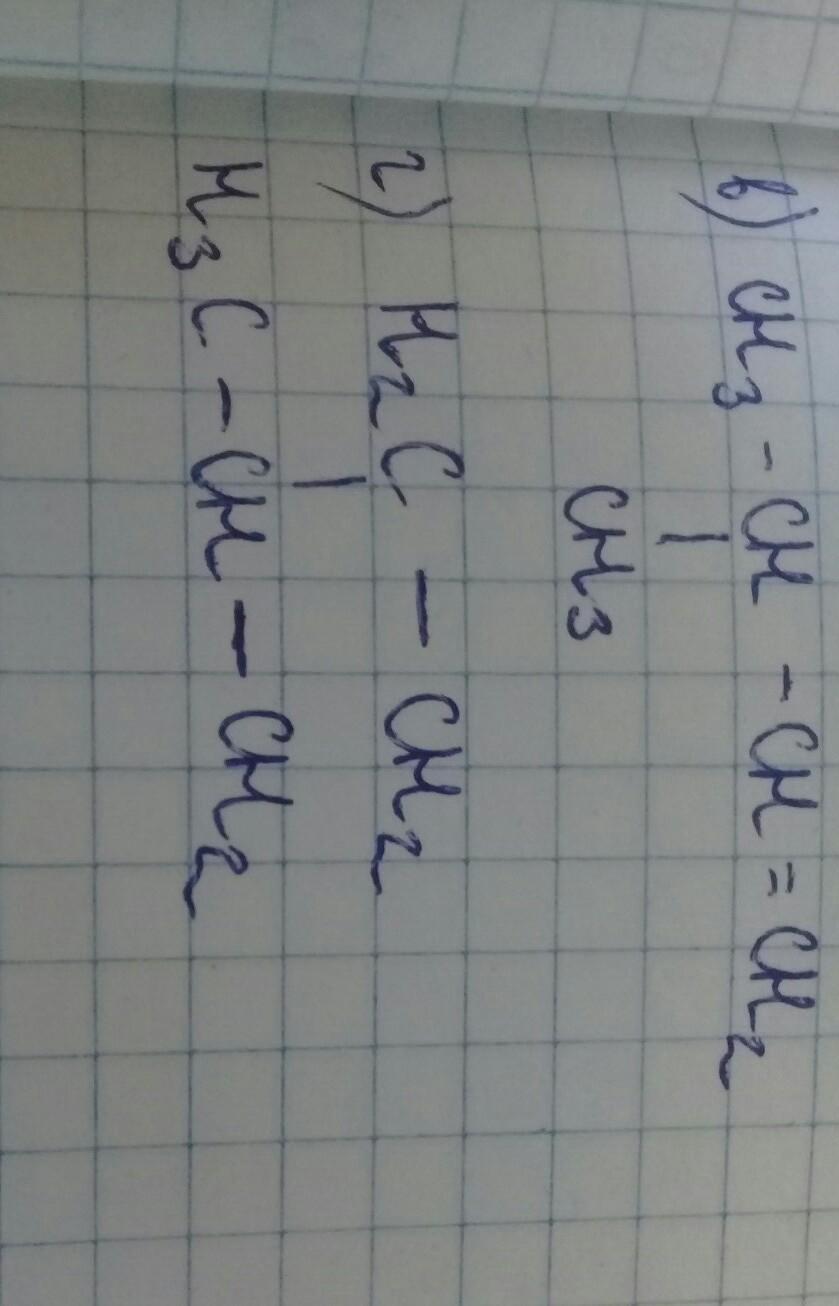 в) CH3 - CH - CH = CH2
|
CH3
г) H2C — CH2
|
H3C - CH — CH2